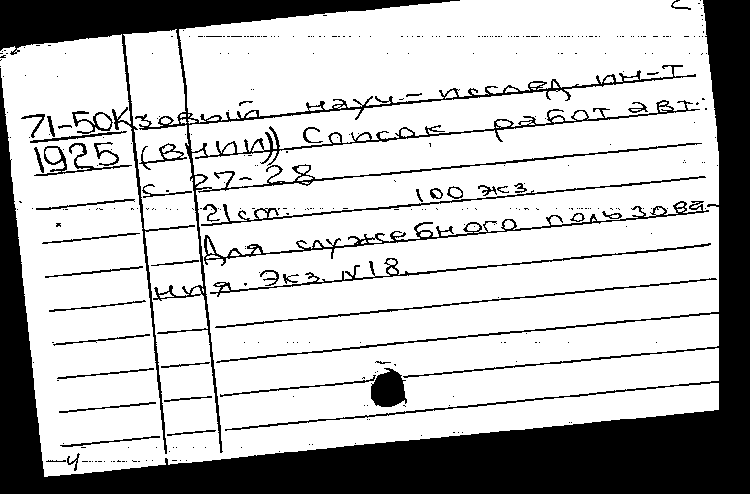 71-50К зовый науч-послед. ин-т
1925 (ВНИИ)). Список работ авт.:
с. 27-28
21 ст. 100 экз.
Для служебного пользова-
ния. Экз. N18.